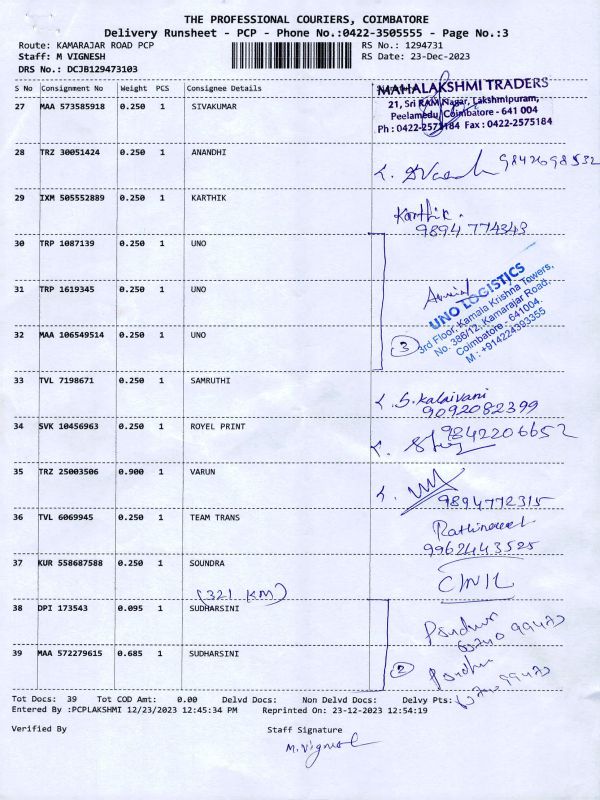 THE PROFESSIONAL COURIERS, COIMBATORE
Delivery Runsheet - PCP - Phone No.:0422-3505555 - Page No.:3
Route: KAMARAJAR ROAD PCP RS No.: 1294731
Staff: M VIGNESH RS Date: 23-Dec-2023
DRS No.: DCJB129473103
S No Consignment No Weight PCS Consignee Details
MAHALAKSHMI TRADERS
27 MAA 573585918 0.250 1 SIVAKUMAR
21, Sri RAM Nagar, Lakshmipuram,
Peelamedu, Coimbatore - 641 004
Ph : 0422-2571184 Fax : 0422-2575184
28 TRZ 30051424 0.250 1 ANANDHI
9842698532
29 IXM 505552889 0.250 1 KARTHIK
Karthik.
9894 774343
30 TRP 1087139 0.250 1 UNO
31 TRP 1619345 0.250 1 UNO
UNO LOGISTICS
3rd Floor, Kamala Krishna Towers,
No. 386/12, Kamarajar Road,
Coimbatore - 641004.
M : +914224393355
32 MAA 106549514 0.250 1 UNO
3
33 TVL 7198671 0.250 1 SAMRUTHI
S.Kalaivani
9092082399
34 SVK 10456963 0.250 1 ROYEL PRINT
9842206652
35 TRZ 25003506 0.900 1 VARUN
9894772315
36 TVL 6069945 0.250 1 TEAM TRANS
9962443525
37 KUR 558687588 0.250 1 SOUNDRA
(321 KM)
38 DPI 173543 0.095 1 SUDHARSINI
39 MAA 572279615 0.685 1 SUDHARSINI
2
Tot Docs: 39 Tot COD Amt: 0.00 Delvd Docs: Non Delvd Docs: Delvy Pts:
Entered By :PCPLAKSHMI 12/23/2023 12:45:34 PM Reprinted On: 23-12-2023 12:54:19
Verified By Staff Signature
M. Vignesh